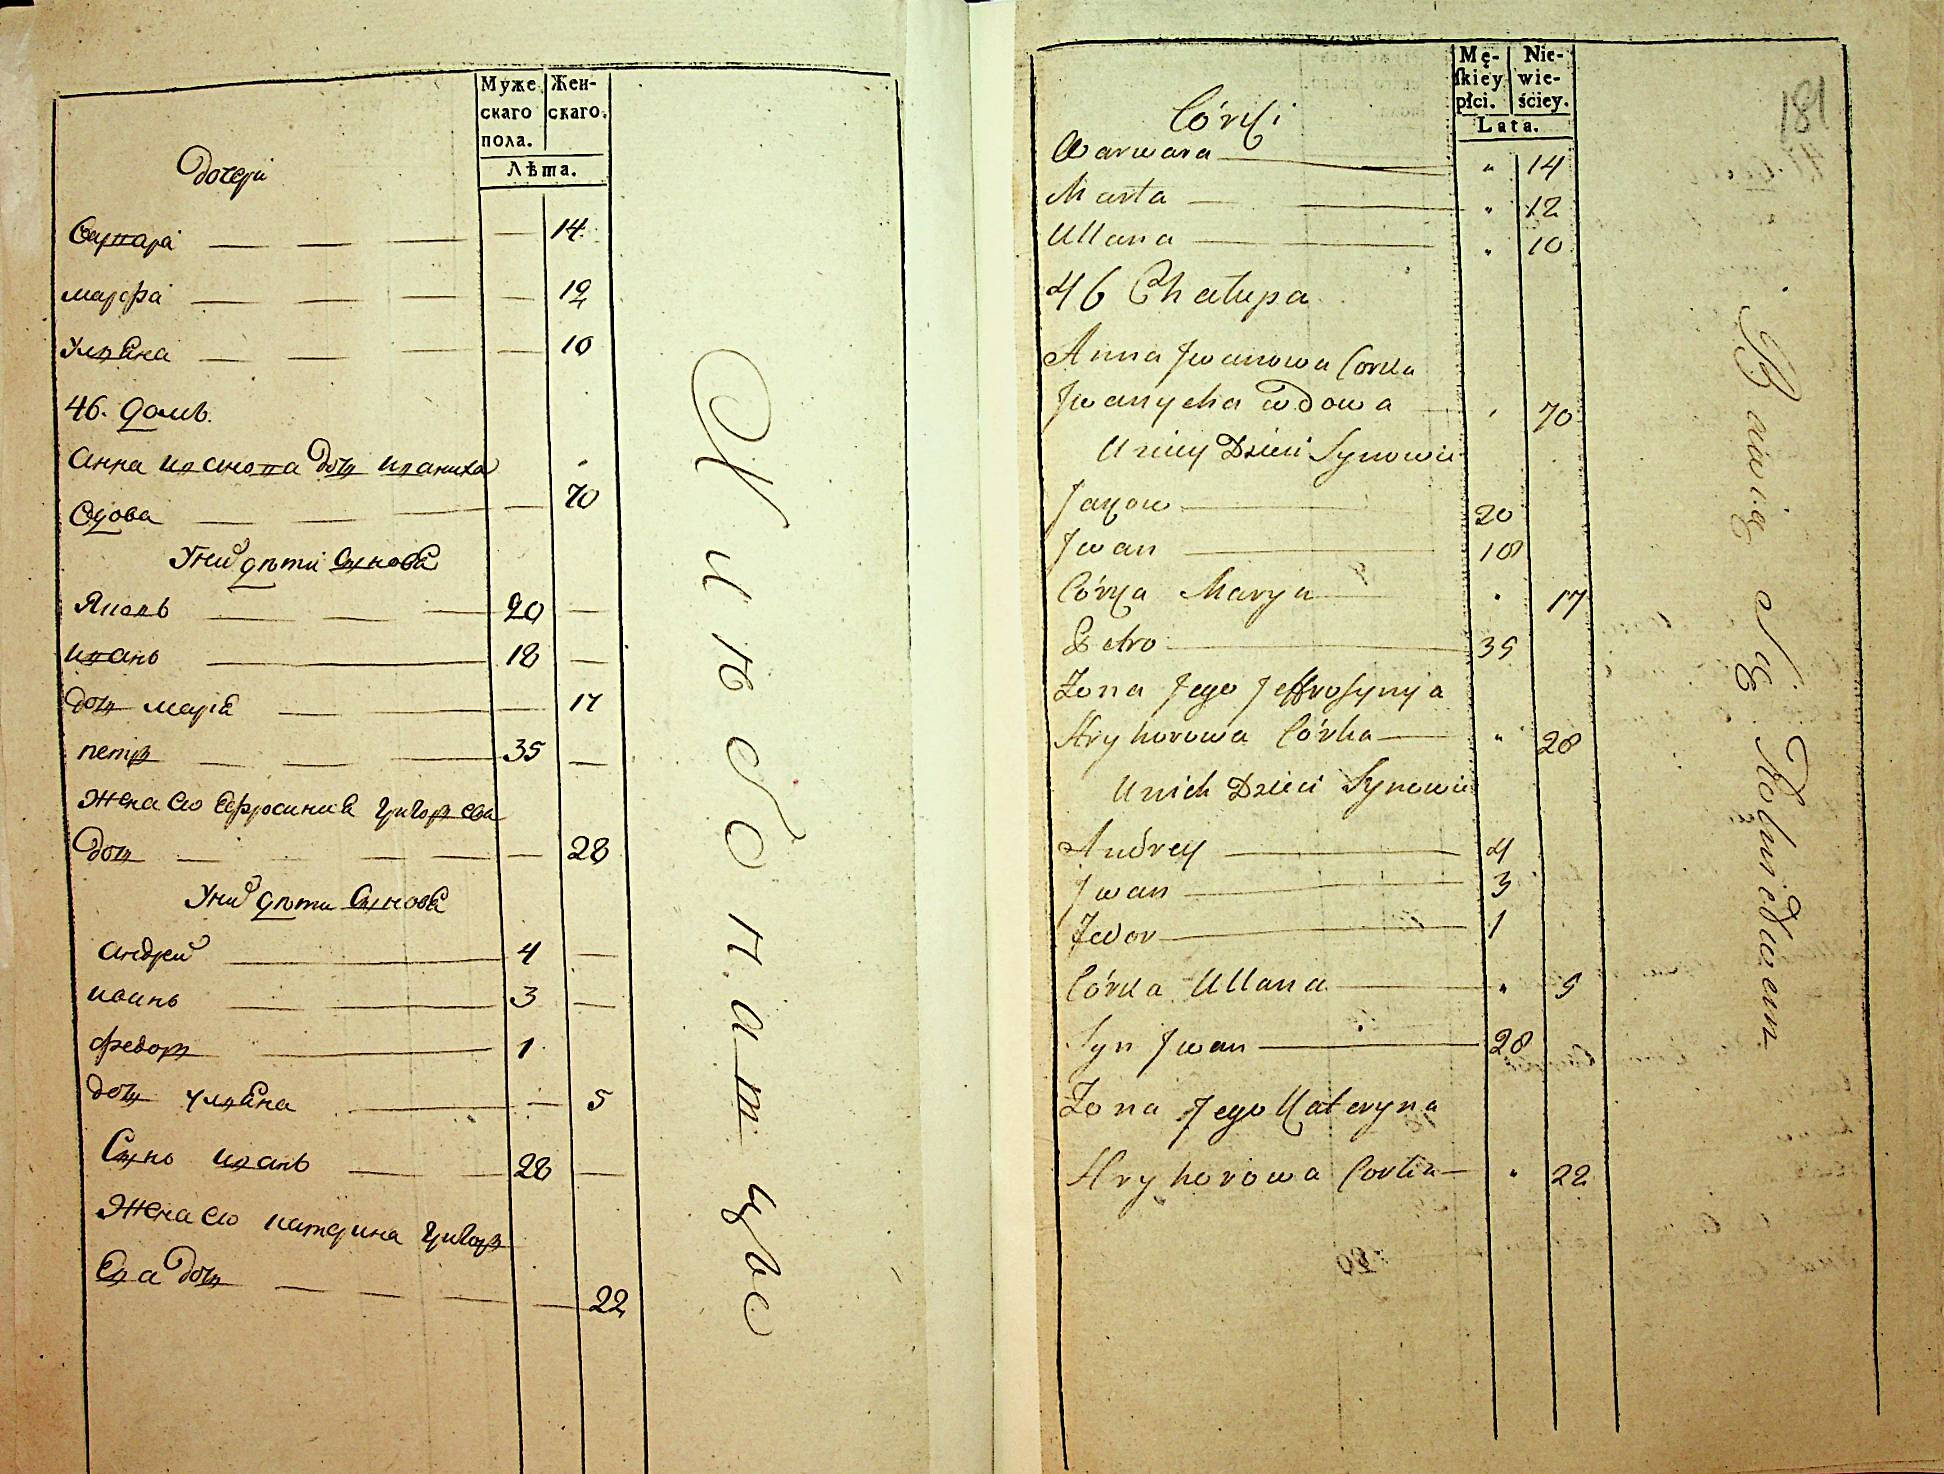 Муже
скаго
пола.
Жен-
скаго.
Лѣта.
дочери
Варвара 14
марфа 12
Улияна 10
46. домъ.
Анна Иванова дочь Иваниха
Вдова 70
Уней дѣти Сынови
Яковъ 20
Иванъ 18
дочь мария 17
петръ 35
Жена его Ефросиния Григорьева
дочь 28
Уних дѣти Сынови
Андрей 4
Иванъ 3
Федоръ 1
дочь улияна 5
Сынъ Иванъ 28
Жена его катерина Григорь
Ева дочь 22
Хлѣбопашцы
Mę-
skiey
płci.
Nie-
wie-
ściey.
Lata.
181
Córki
Warwara " 14
Marta " 12
Ullana " 10
46 Chałupa
Anna Jwanowa Corka
Jwanycha wdowa " 70
Uniey Dzieci Synowie
Jakow 20
Jwan 18
Córka Marya " 17
Petro 35
Żona Jego Jeffrosynija
Hryhorowa Córka " 28
Unich Dzieci Synowie
Andrey 4
Jwan 3
Fedor 1
Córka Ullana " 5
Syn Jwan 28
Żona Jego Kateryna
Hryhorowa Corka " 22
Bawią się Rolnictwem